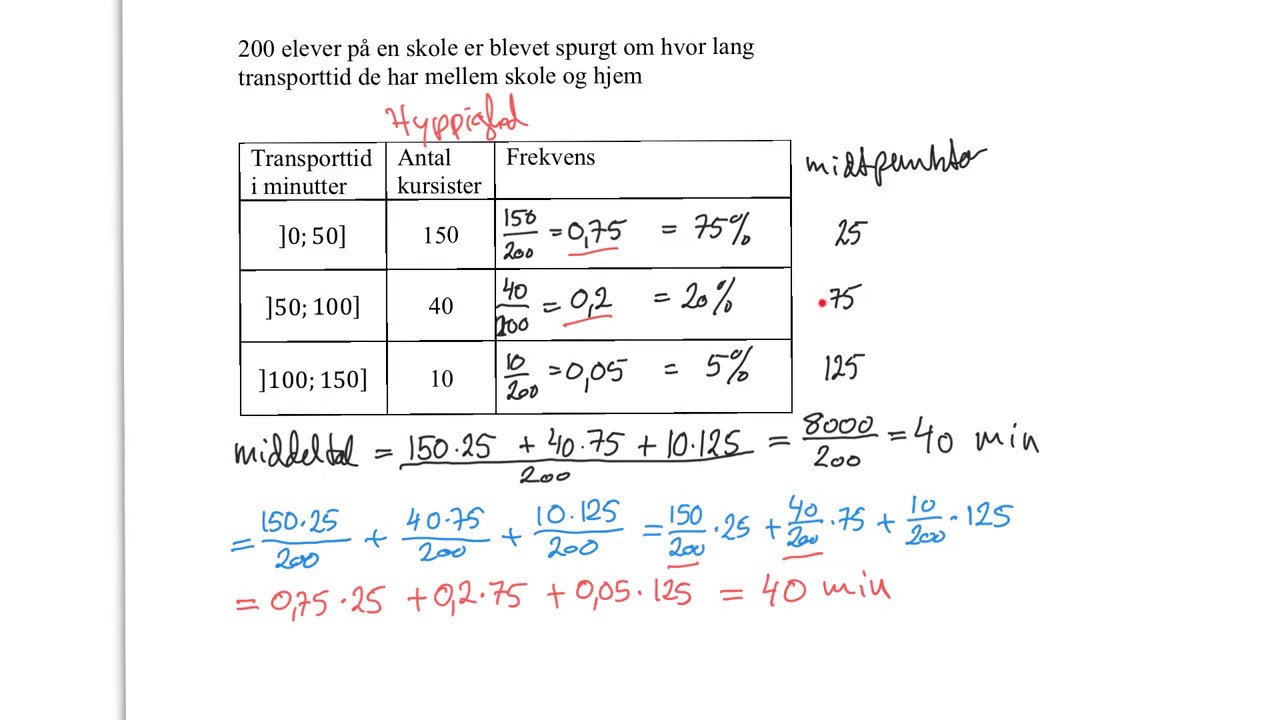 200 elever på en skole er blevet spurgt om hvor lang
transporttid de har mellem skole og hjem
Hyppighed
Transporttid i minutter Antal kursister Frekvens midtpunkter
]0; 50] 150 150/200 = 0,75 = 75% 25
]50; 100] 40 40/200 = 0,2 = 20% 75
]100; 150] 10 10/200 = 0,05 = 5% 125
middeltal = (150·25 + 40·75 + 10·125)/200 = 8000/200 = 40 min
= 150·25/200 + 40·75/200 + 10·125/200 = 150/200 · 25 + 40/200 · 75 + 10/200 · 125
= 0,75·25 + 0,2·75 + 0,05·125 = 40 min